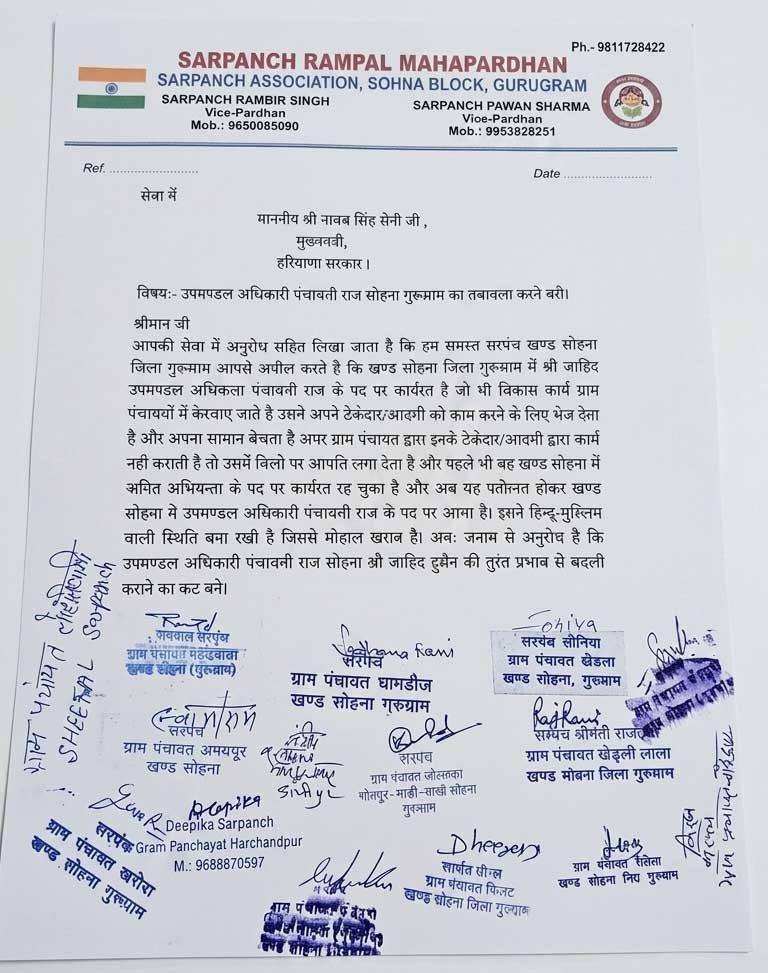 Ph.- 9811728422
SARPANCH RAMPAL MAHAPARDHAN
SARPANCH ASSOCIATION, SOHNA BLOCK, GURUGRAM
SARPANCH RAMBIR SINGH
Vice-Pardhan
Mob.: 9650085090
SARPANCH PAWAN SHARMA
Vioe-Pardhan
Mob.: 9953828251
Ref. ..........................
Date ..........................
सेवा में
माननीय श्री नावब सिंह सेनी जी ,
मुख्यववी,
हरियाणा सरकार।
विषयः- उपमपडल अधिकारी पंचावती राज सोहना गुरूग्राम का तबावला करने बरी।
श्रीमान जी
आपकी सेवा में अनुरोध सहित लिखा जाता है कि हम समस्त सरपंच खण्ड सोहना
जिला गुरूग्राम आपसे अपील करते है कि खण्ड सोहना जिला गुरूग्राम में श्री जाहिद
उपमपडल अधिकला पंचावनी राज के पद पर कार्यरत है जो भी विकास कार्य ग्राम
पंचाययों में केरवाए जाते है उसने अपने टेकेदार/आदगी को काम करने के लिए भेज देता
है और अपना सामान बेचता है अपर ग्राम पंचायत द्वारा इनके टेकेदार/आदमी द्वारा कार्म
नही कराती है तो उसमें विलो पर आपति लगा देता है और पहले भी बह खण्ड सोहना में
अमित अभियन्ता के पद पर कार्यरत रह चुका है और अब यह पतोन्नत होकर खण्ड
सोहना में उपमण्डल अधिकारी पंचावती राज के पद पर आमा है। इसने हिन्दू-मुस्लिम
वाली स्थिति बमा रखी है जिससे मोहाल खराब है। अबः जनाम से अनुरोध है कि
उपमण्डल अधिकारी पंचावनी राज सोहना श्री जाहिद हुसैन की तुरंत प्रभाव से बदली
कराने का कट बने।
ग्राम पंचायत
SHEETAL Sarpanch
सरपंच
खण्ड सोहना (गुरूग्राम)
Sadhana Rani
सरपंच
ग्राम पंचावत घामडीज
खण्ड सोहना गुरुग्राम
Soniya
सरपंच सोनिया
ग्राम पंचावत खेडला
खण्ड सोहना, गुरूग्राम
सरपंच
ग्राम पंचावत अमयपूर
खण्ड सोहना
सरपंच
ग्राम पंचावत जोलाका
खण्ड सोहना
गुरूग्राम
RajRani
सरपंच श्रीमती राज
ग्राम पंचावत खेडली लाला
खण्ड मोबना जिला गुरूग्राम
Deepika
Deepika Sarpanch
Gram Panchayat Harchandpur
M.: 9688870597
सरपंच
ग्राम पंचावत खरोरा
खण्ड सोहना गुरूग्राम
Dheeraj
ग्राम पंचावत
खण्ड सोहना जिला गुरूग्राम
ग्राम पंचावत
खण्ड सोहना